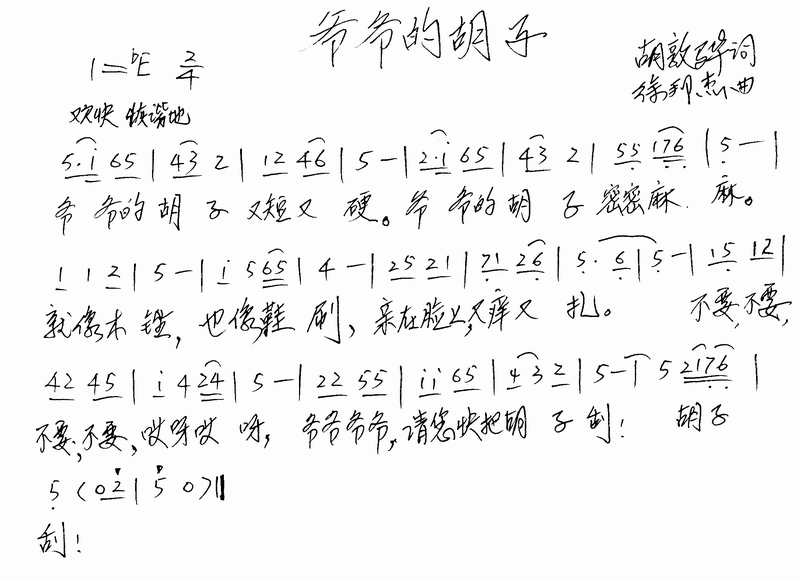 爷爷的胡子
1=ᵇE 2/4
胡敦骅词
徐邦杰曲
欢快 诙谐地
5·i 65 | 43 2 | 12 46 | 5 — | 2·i 65 | 43 2 | 55 176 | 5 — |
爷 爷的 胡 子 又短又 硬。爷 爷的 胡 子 密密麻 麻。
1 1 2 | 5 — | i 5 65 | 4 — | 25 21 | 71 26 | 5· 6 | 5 — | 15 12 |
就像木 锉, 也像鞋 刷, 亲在脸上,又痒又 扎。 不要,不要,
42 45 | i 4 24 | 5 — | 22 55 | ii 65 | 4 3 2 | 5 — | 5 2176 |
不要,不要,哎呀哎 呀, 爷爷爷爷,请您快把胡 子 刮! 胡子
5 (02 | 5 0)‖
刮!